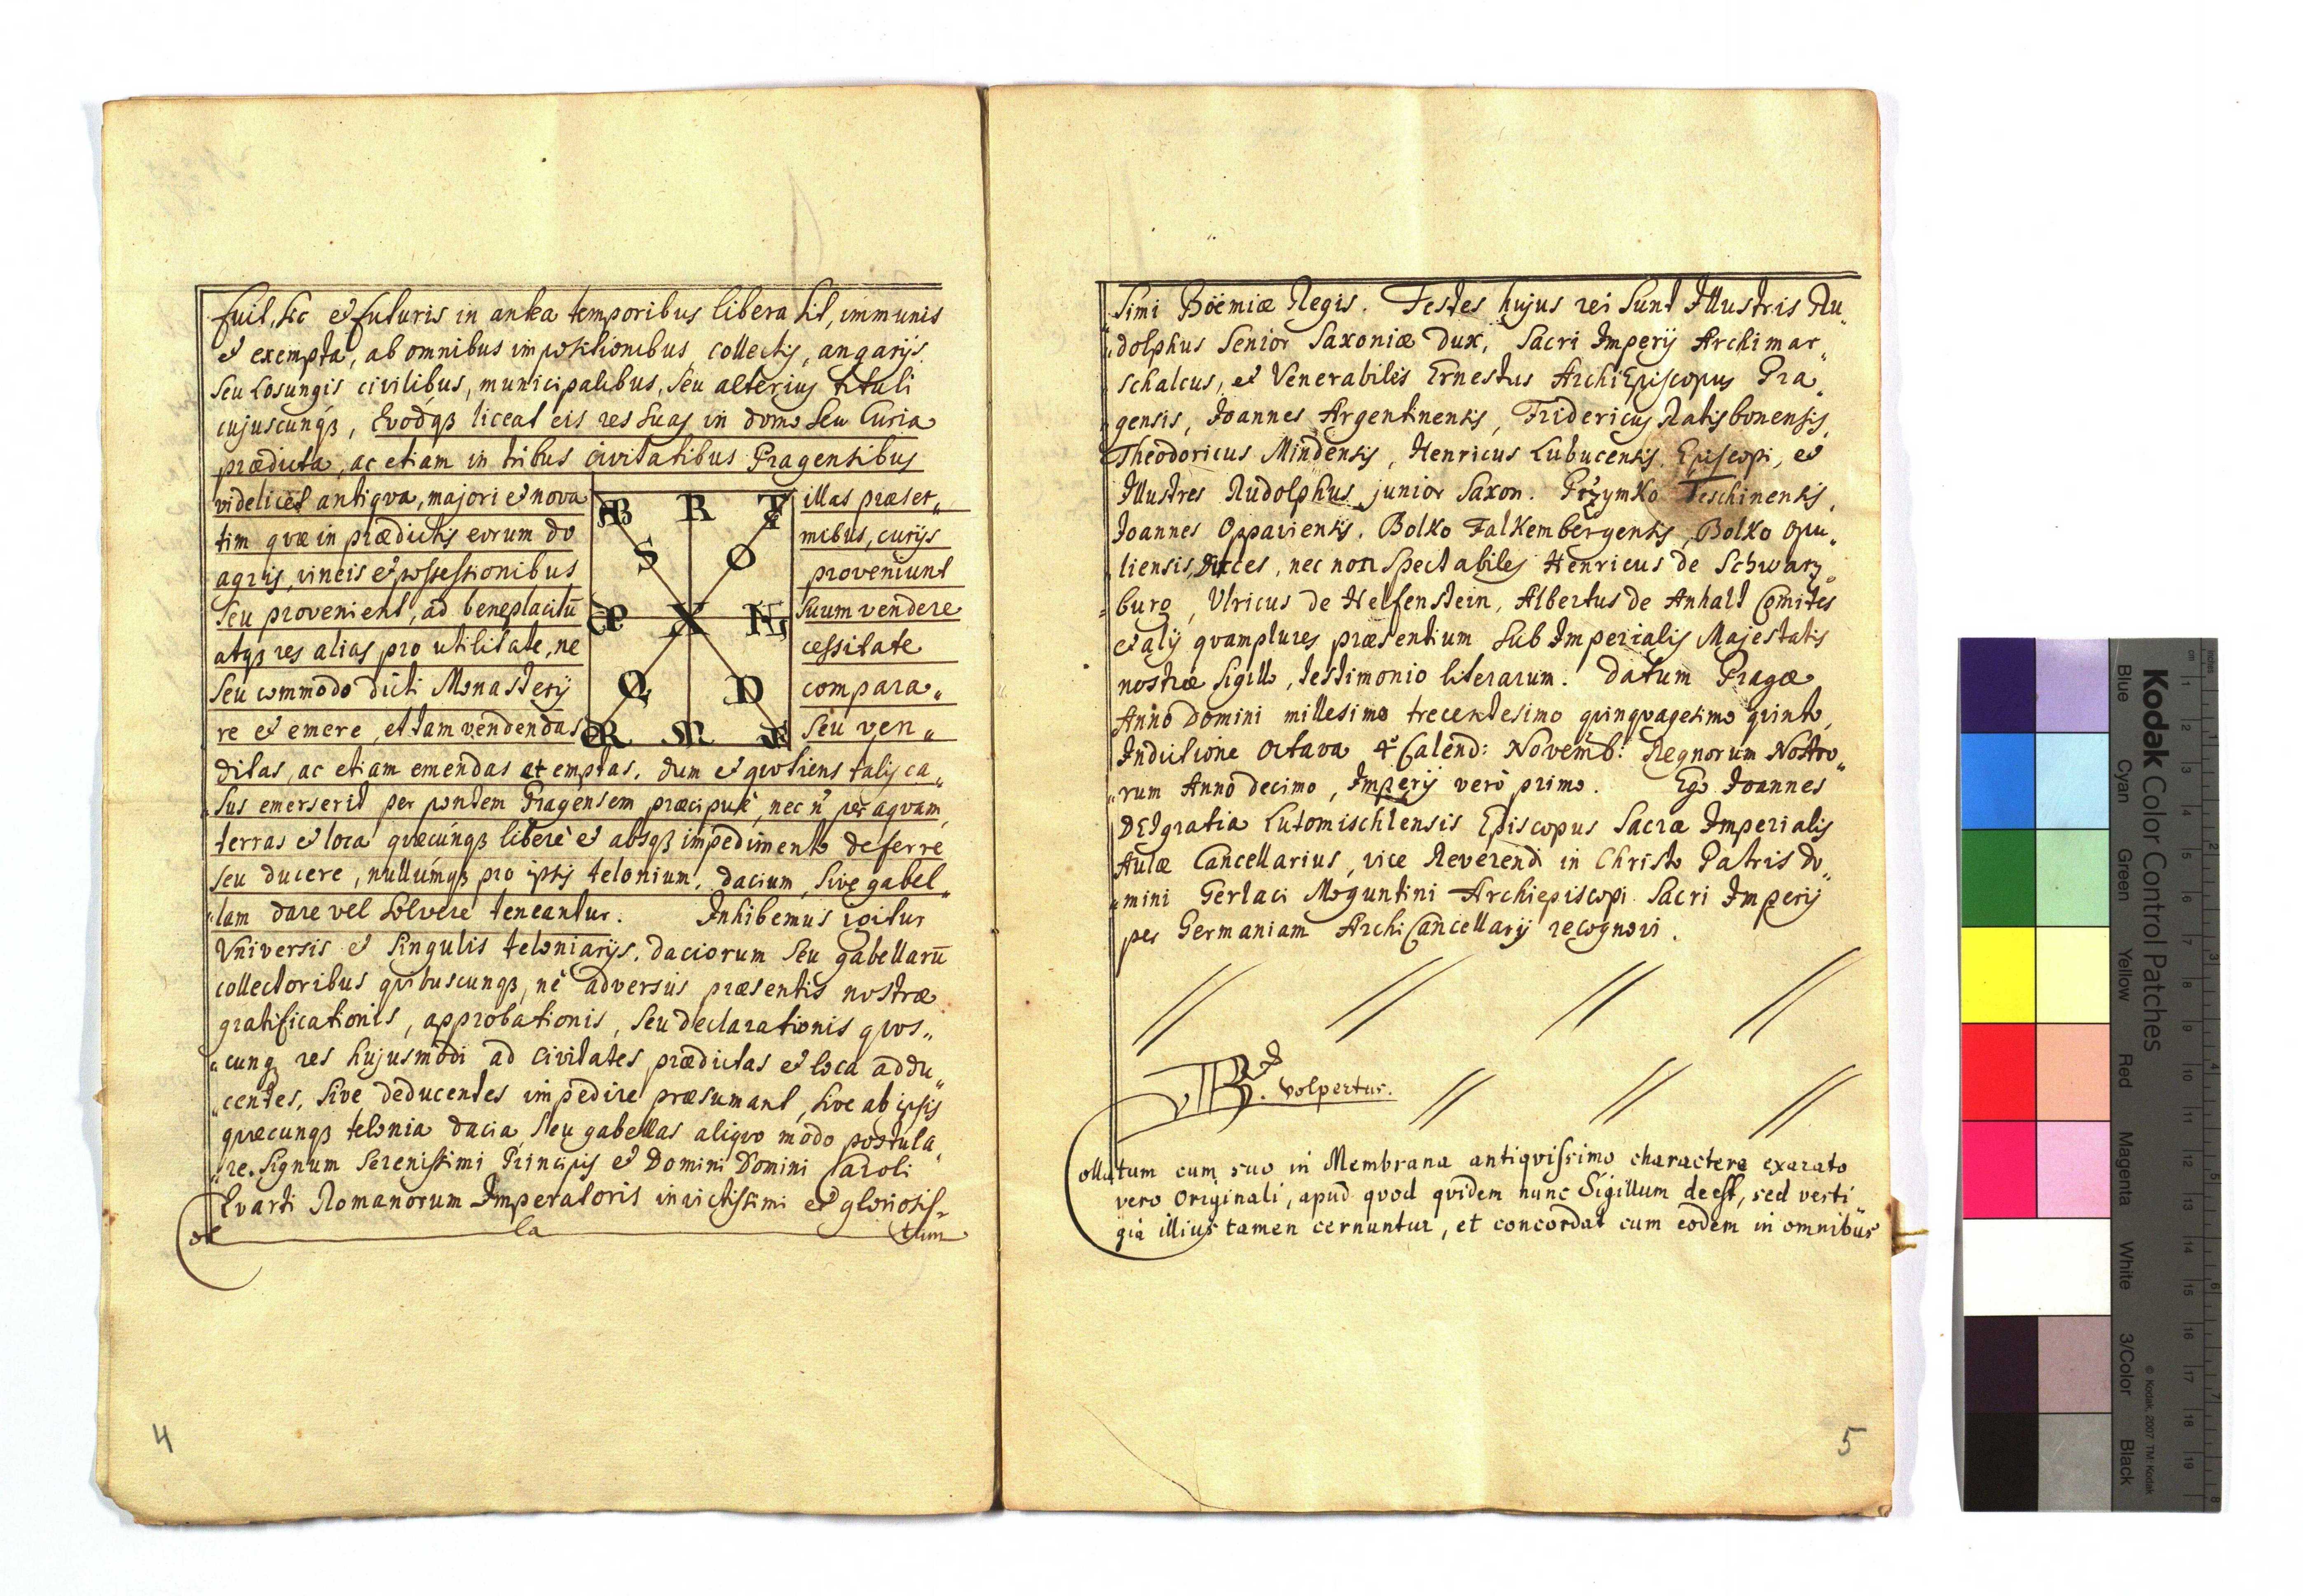 fuit, sic et futuris in antea temporibus libera sit, immunis
et exempta, ab omnibus impositionibus, collectis, angarijs,
seu Losungis civilibus, municipalibus, seu alterius tituli
cujuscunqꝫ, Qvodqꝫ liceat eis res suas in domo seu Curia
prædicta, ac etiam in tribus civitatibus Pragensibus
videlicet antiqva, majori et nova illas præser„
tim qvæ in prædictis eorum do mibus, curijs
agris, vineis et possessionibus proveniunt
seu provenient, ad beneplacitū suum vendere
atqꝫ res alias pro utilitate, ne cessitate
seu commodo dicti Monasterij compara„
re et emere, et tam vendendas seu ven„
B R T
S O
P X
Q D
R M
ditas, ac etiam emendas et emptas, dum et qvotiens talis ca„
„sus emerserit per pontem Pragensem præcipuè, nec n̄ per aqvam,
terras et loca qvæcunqꝫ liberè et absqꝫ impedimento deferre
seu ducere, nullumqꝫ pro ipsis telonium, dacium, sive gabel„
„lam dare vel solvere teneantur. Inhibemus igitur
Vniversis et singulis teloniarijs, daciorum seu gabellarū
collectoribus qvibuscunqꝫ, nè adversus præsentis nostræ
gratificationis, approbationis, seu declarationis qvos„
„cunqꝫ res hujusmodi ad civitates prædictas et loca addu„
„centes, sive deducentes impedire præsumant, sive ab ipsis
qvæcunqꝫ telonia dacia, seu gabellas aliqvo modo postula„
„re. Signum Serenissimi Principis et Domini Domini Caroli
Qvarti Romanorum Imperatoris invictissimi et gloriosis„
ol la tum
4
„simi Boëmiæ Regis. Testes hujus rei sunt Illustris Ru„
„dolphus Senior Saxoniæ Dux, Sacri Imperij Archimar„
schalcus, et Venerabiles Ernestus ArchiEpiscopus Pra„
gensis, Joannes Argentinensis, Fridericus Ratisbonensis,
Theodoricus Mindensis, Henricus Lubucensis Episcopi, et
Illustres Rudolphus junior Saxon. Przymko Teschinensis,
Joannes Oppaviensis, Bolko Falkembergensis, Bolko Opu„
liensis, Duces, nec non spectabiles Henricus de Schwarz„
burg, Ulricus de Helfenstein, Albertus de Anhalt Comites
et alij qvamplures præsentium sub Imperialis Majestatis
nostræ sigillo, testimonio literarum. Datum Pragæ
Anno Domini millesimo trecentesimo qvinqvagesimo qvinto,
Indictione octava 4° Calend: Novemb: Regnorum Nostro„
„rum Anno decimo, Imperij verò primo. Ego Joannes
DEI gratia Lutomischlensis Episcopus Sacræ Imperialis
Aulæ Cancellarius, vice Reverendi in Christo Patris Do„
„mini Gerlaci Moguntini Archiepiscopi Sacri Imperij
per Germaniam ArchiCancellarij recognovi.
Rt. volpertus.
Collatum cum suo in Membrana antiqvissimo charactere exarato
vero Originali, apud qvod qvidem nunc Sigillum deest, sed vesti
gia illius tamen cernuntur, et concordat cum eodem in omnibus
5
Kodak Color Control Patches
Blue Cyan Green Yellow Red Magenta White 3/Color Black
© Kodak, 2007 TM: Kodak
inches 1 2 3 4 5 6 7 8
cm 1 2 3 4 5 6 7 8 9 10 11 12 13 14 15 16 17 18 19